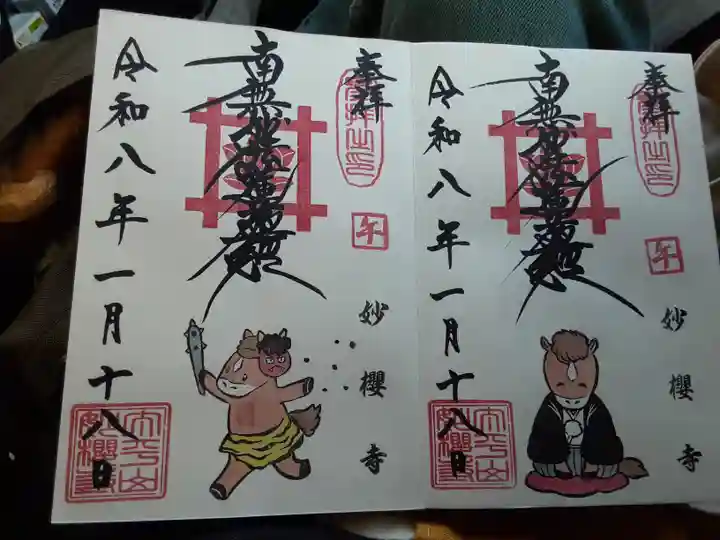 奉拝
南無妙法蓮華経
午
妙櫻寺
令和八年一月十八日
奉拝
南無妙法蓮華経
午
妙櫻寺
令和八年一月十八日